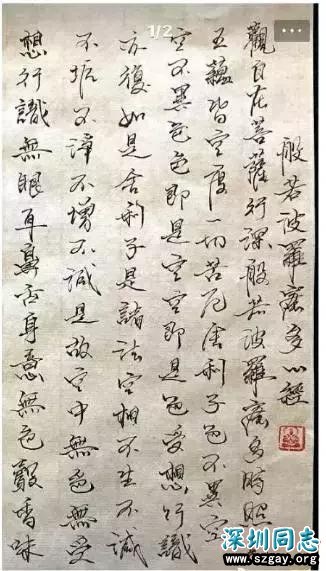 1/2
般若波羅蜜多心經
觀自在菩薩行深般若波羅蜜多時照
五蘊皆空度一切苦厄舍利子色不異空
空不異色色即是空空即是色受想行識
亦復如是舍利子是諸法空相不生不滅
不垢不淨不增不減是故空中無色無受
想行識無眼耳鼻舌身意無色聲香味
深圳同志
(www.szgay.org)